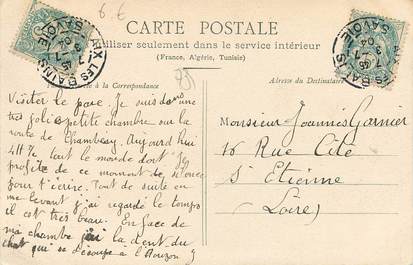 6.€
CARTE POSTALE
utiliser seulement dans le service intérieur
(France, Algérie, Tunisie)
AIX-LES-BAINS
SAVOIE
LES-BAINS
SAVOIE
à la Correspondance
Adresse du Destinataire
Visiter le parc. Je suis dans une
très jolie petite chambre sur la
route de Chambéry. Aujourd'hui
tout le monde dort. Je
profite de ce moment de silence
pour t'écrire. Tout de suite en
me levant j'ai regardé le temps
il est très beau. En face de
ma chambre j'ai la dent du
chat qui se découpe à l'
Monsieur Joannès Garnier
16 Rue Cité
St Etienne
(Loire)